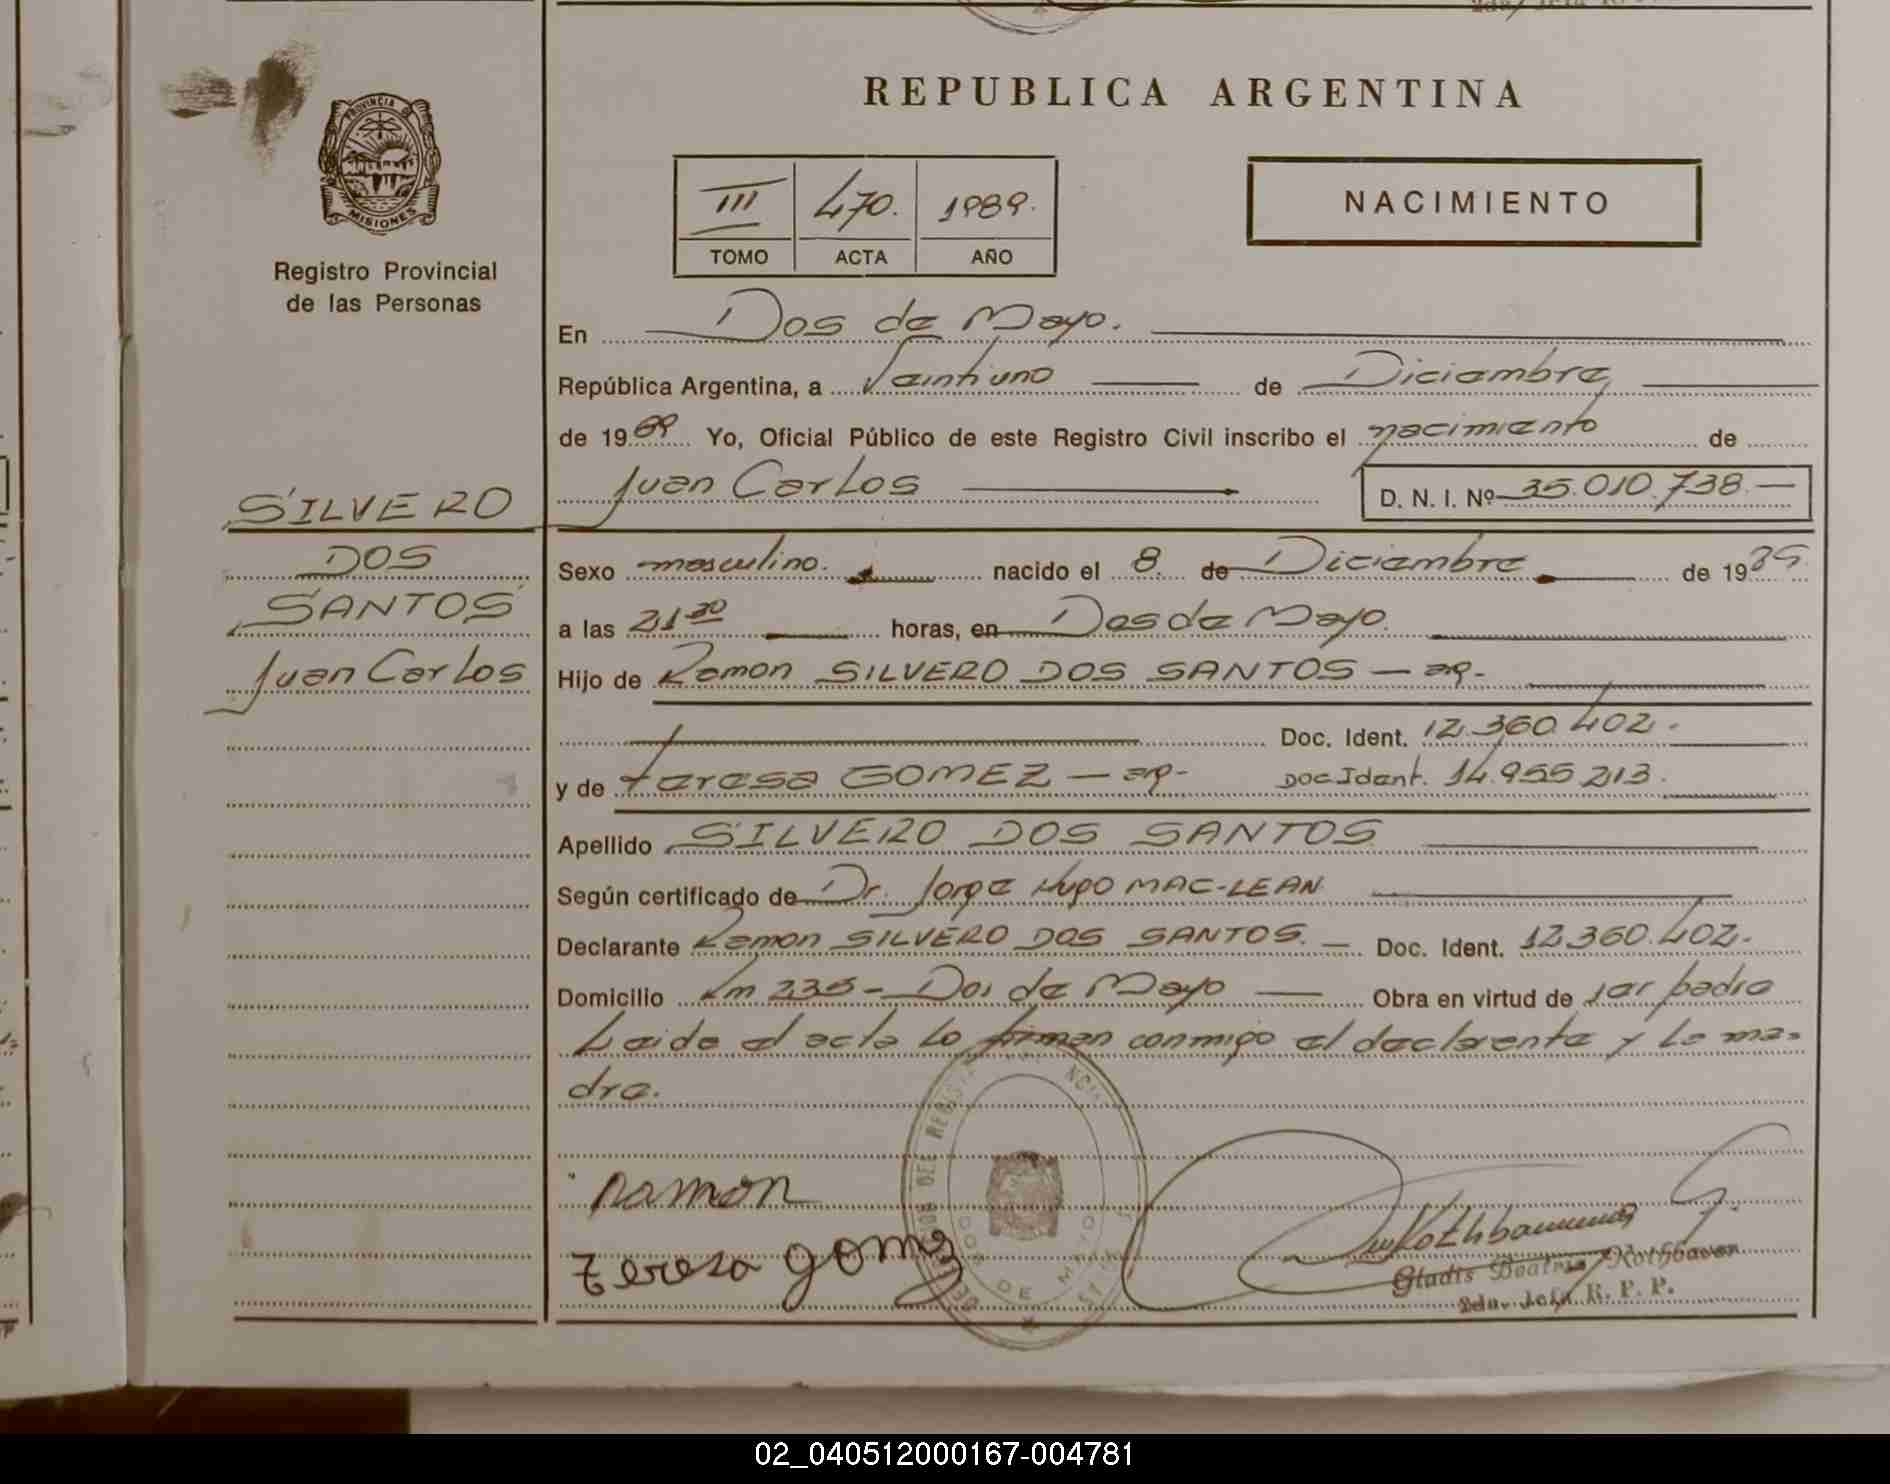 REPUBLICA ARGENTINA
PROVINCIA DE
MISIONES
Registro Provincial
de las Personas
III 470. 1989.
TOMO ACTA AÑO
NACIMIENTO
En Dos de Mayo.
República Argentina, a Veintiuno de Diciembre
de 1989 Yo, Oficial Público de este Registro Civil inscribo el nacimiento de
Juan Carlos D. N. I. Nº 35.010.738.
SILVERO
DOS
SANTOS
Juan Carlos
Sexo masculino. nacido el 8. de Diciembre de 1989.
a las 21 30 horas, en Dos de Mayo.
Hijo de Ramon SILVERO DOS SANTOS — ar.-
Doc. Ident. 12.360.402.-
y de Teresa GOMEZ — ar.- Doc Ident. 14.955.213.
Apellido SILVERO DOS SANTOS
Según certificado de Dr. Jorge Hugo MAC-LEAN
Declarante Ramon SILVERO DOS SANTOS. — Doc. Ident. 12.360.402.-
Domicilio Km 235 - Dos de Mayo — Obra en virtud de ser padre
Leida el acta la firman conmigo el declarante y la ma-
dre.
Ramon
Teresa gomez
DOS DE MAYO
Gladis Beatriz Rothbauer
2da. Jefa R. P. P.
02_040512000167-004781